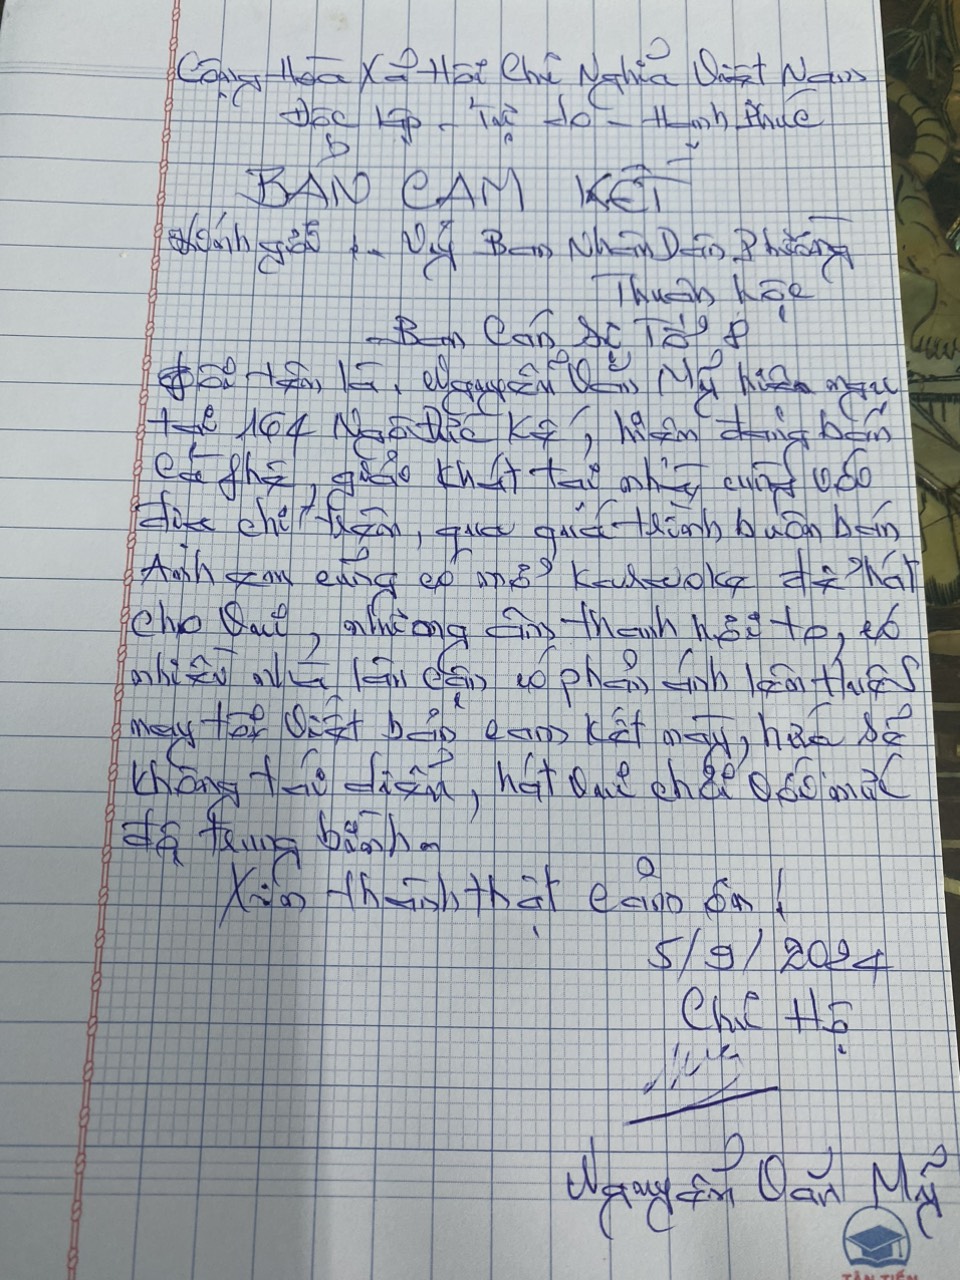 Cộng Hòa Xã Hội Chủ Nghĩa Việt Nam
Độc lập - Tự do - Hạnh Phúc
BẢN CAM KẾT
Kính gửi :- Uỷ Ban Nhân Dân Phường
Thuận Lộc
- Ban Cán Sự Tổ 8
Tôi tên là, Nguyễn Văn Mỹ hiện ngụ
tại 164 Ngô Đức Kế, hiện đang bán
cà phê, giải khát tại nhà, cùng với
địa chỉ trên, qua quá trình buôn bán
Anh em cũng có mở Karaoke để hát
cho Vui, nhưng âm thanh hơi to, có
nhiều nhà lân cận có phản ánh lên
nay tôi Viết bản cam kết này, hứa sẽ
không tái diễn, hát Vui chơi với mức
độ trung bình.
Xin thành thật cảm ơn !
5/9/2024
Chủ Hộ
Nguyễn Văn Mỹ
TÂN TIẾN